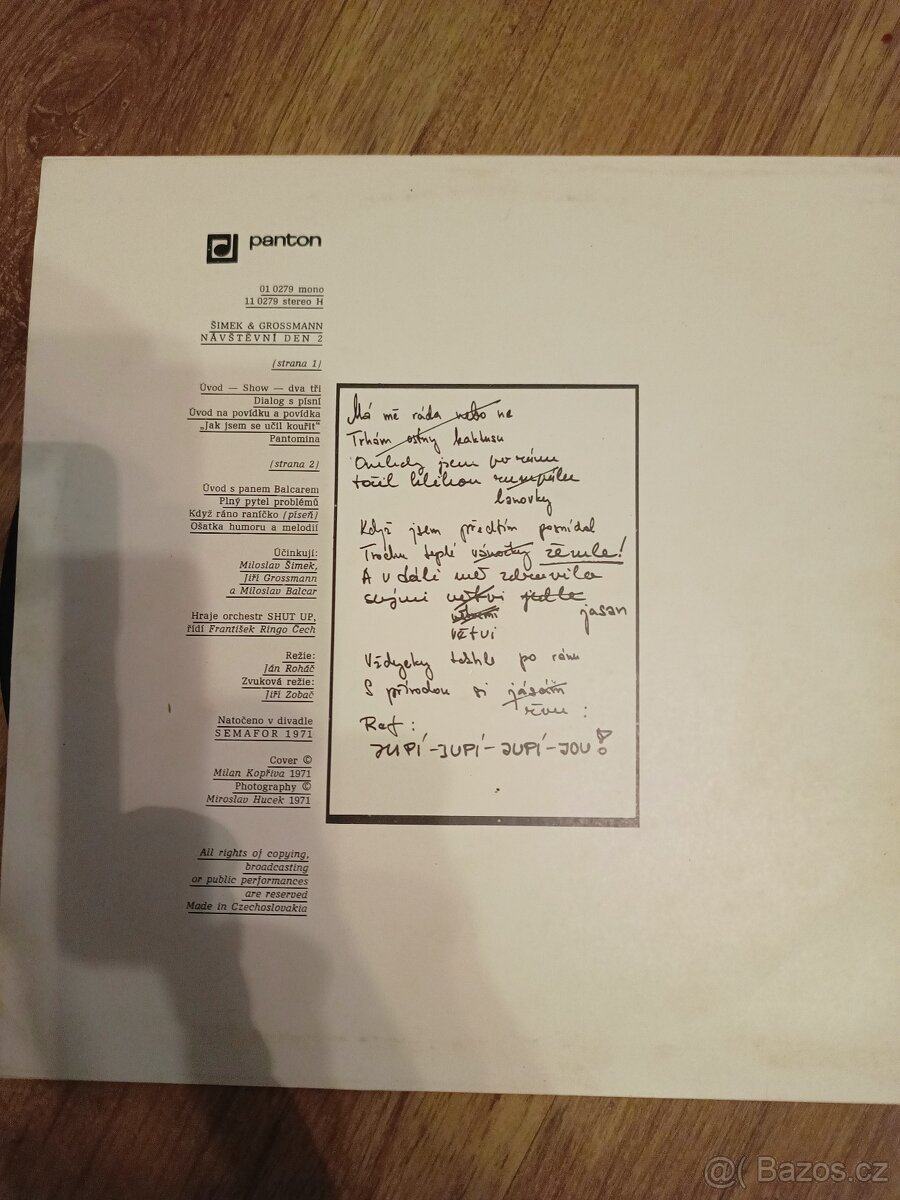 panton
01 0279 mono
11 0279 stereo H
ŠIMEK & GROSSMANN
NÁVŠTĚVNÍ DEN 2
[strana 1]
Úvod — Show — dva tři
Dialog s písní
Úvod na povídku a povídka
„Jak jsem se učil kouřit“
Pantomina
[strana 2]
Úvod s panem Balcarem
Plný pytel problémů
Když ráno raníčko [píseň]
Ošatka humoru a melodií
Účinkují:
Miloslav Šimek,
Jiří Grossmann
a Miloslav Balcar
Hraje orchestr SHUT UP,
řídí František Ringo Čech
Režie:
Ján Roháč
Zvuková režie:
Jiří Zobač
Natočeno v divadle
SEMAFOR 1971
Cover ©
Milan Kopřiva 1971
Photography ©
Miroslav Hucek 1971
All rights of copying,
broadcasting
or public performances
are reserved
Made in Czechoslovakia
Má mě ráda nebo ne
Trhám ostny kaktusu
Onehdy jsem po ránu
točil klikou rumpálu
lanovky
Když jsem předtím posnídal
Trochu teplé vánočky žemle!
A v dáli mě zdravila
svými jedle
větvi jasan
Vždycky takhle po ránu
S přírodou si jásám
řvu:
Ref:
JUPÍ-JUPÍ-JUPÍ-JOU!
@( Bazos.cz